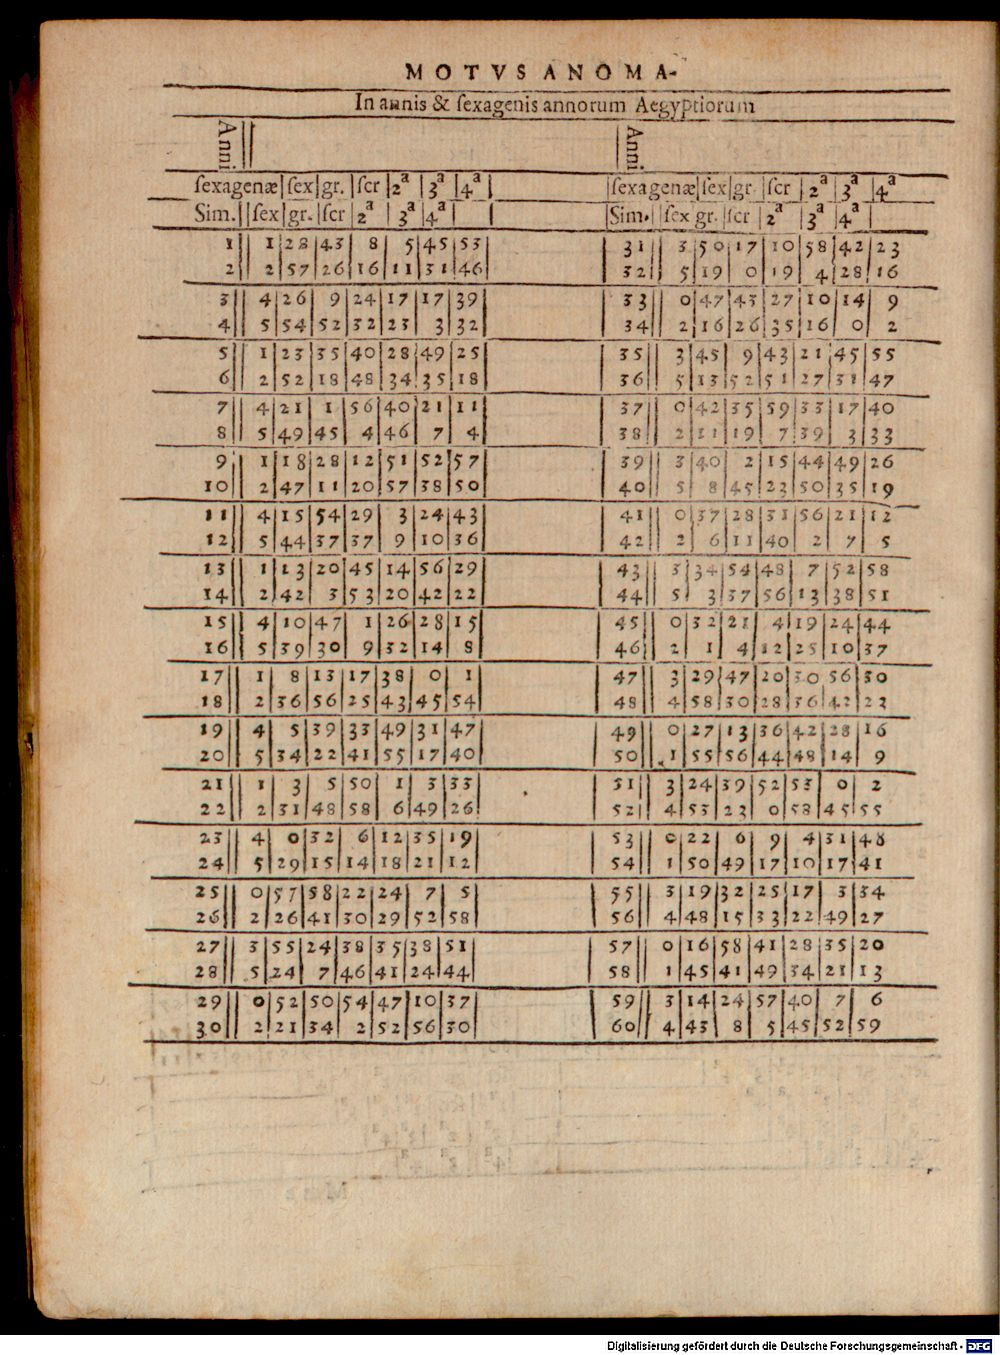 MOTVS ANOMA-
In annis & ſexagenis annorum Aegyptiorum
Anni Anni
ſexagenæ ſex gr. ſcr 2ª 3ª 4ª ſexagenæ ſex gr. ſcr 2ª 3ª 4ª
Sim. ſex gr. ſcr 2ª 3ª 4ª Sim. ſex gr. ſcr 2ª 3ª 4ª
1 1 28 43 8 5 45 53 31 3 50 17 10 58 42 23
2 2 57 26 16 11 31 46 32 5 19 0 19 4 28 16
3 4 26 9 24 17 17 39 33 0 47 43 27 10 14 9
4 5 54 52 32 23 3 32 34 2 16 26 35 16 0 2
5 1 23 35 40 28 49 25 35 3 45 9 43 21 45 55
6 2 52 18 48 34 35 18 36 5 13 52 51 27 31 47
7 4 21 1 56 40 21 11 37 0 42 35 59 33 17 40
8 5 49 45 4 46 7 4 38 2 11 19 7 39 3 33
9 1 18 28 12 51 52 57 39 3 40 2 15 44 49 26
10 2 47 11 20 57 38 50 40 5 8 45 23 50 35 19
11 4 15 54 29 3 24 43 41 0 37 28 31 56 21 12
12 5 44 37 37 9 10 36 42 2 6 11 40 2 7 5
13 1 13 20 45 14 56 29 43 3 34 54 48 7 52 58
14 2 42 3 53 20 42 22 44 5 3 37 56 13 38 51
15 4 10 47 1 26 28 15 45 0 32 21 4 19 24 44
16 5 39 30 9 32 14 8 46 2 1 4 12 25 10 37
17 1 8 13 17 38 0 1 47 3 29 47 20 30 56 30
18 2 36 56 25 43 45 54 48 4 58 30 28 36 42 23
19 4 5 39 33 49 31 47 49 0 27 13 36 42 28 16
20 5 34 22 41 55 17 40 50 1 55 56 44 48 14 9
21 1 3 5 50 1 3 33 51 3 24 39 52 53 0 2
22 2 31 48 58 6 49 26 52 4 53 23 0 58 45 55
23 4 0 32 6 12 35 19 53 0 22 6 9 4 31 48
24 5 29 15 14 18 21 12 54 1 50 49 17 10 17 41
25 0 57 58 22 24 7 5 55 3 19 32 25 17 3 34
26 2 26 41 30 29 52 58 56 4 48 15 33 22 49 27
27 3 55 24 38 35 38 51 57 0 16 58 41 28 35 20
28 5 24 7 46 41 24 44 58 1 45 41 49 34 21 13
29 0 52 50 54 47 10 37 59 3 14 24 57 40 7 6
30 2 21 34 2 52 56 30 60 4 43 8 5 45 52 59
Digitalisierung gefördert durch die Deutsche Forschungsgemeinschaft - DFG